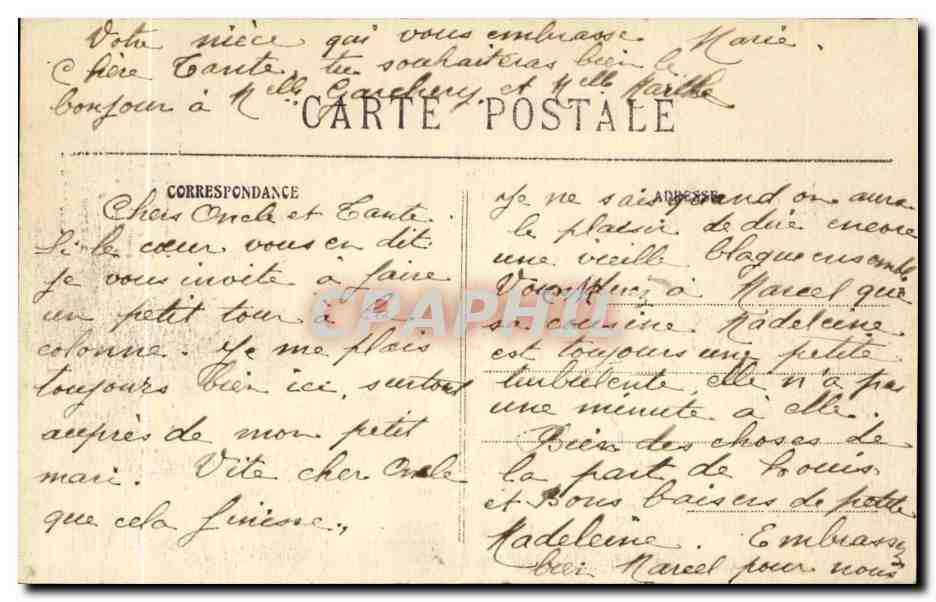 Votre nièce qui vous embrasse Marie.
Chère Tante, tu souhaiteras bien le
bonjour à Melle Garchery et Melle Marthe
CARTE POSTALE
CORRESPONDANCE
Chers Oncle et Tante.
Si le cœur vous en dit
je vous invite à faire
un petit tour à la
colonne. Je me plais
toujours bien ici, surtout
auprès de mon petit
mari. Vite cher Oncle
que cela finisse.,
ADRESSE
Je ne sais quand on aura
le plaisir de dire encore
une vieille blague ensemble
Vous direz à Marcel que
sa cousine Madeleine
est toujours une petite
turbulente elle n'a pas
une minute à elle.
Bien des choses de
la part de Louis
et Bons baisers de petite
Madeleine. Embrassez
bien Marcel pour nous
CPAPHIL